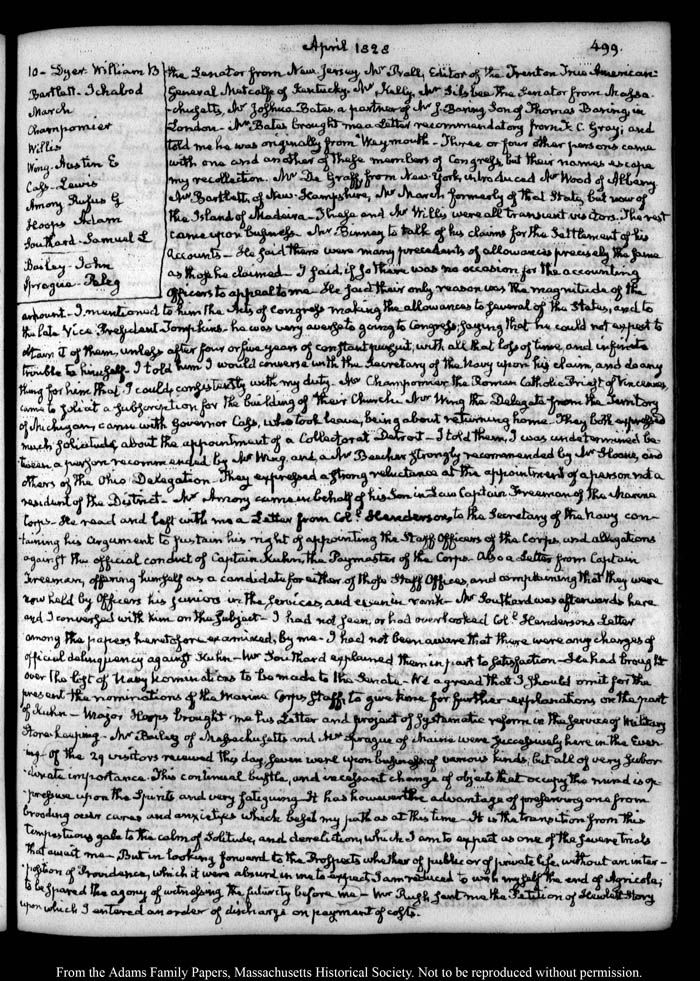 April 1828
499.
10 - Dyer. William B
Bartlett. Ichabod
March
Champomier
Willis
Wing. Austin E
Cass. Lewis
Amory Rufus G
Hoops Adam
Southard. Samuel L
Bailey. John
Sprague. Peleg
the Senator from New Jersey, Mr Prall, Editor of the Trenton True American-
General Metcalfe of Kentucky. Mr Kelly, Mr Silsbee the Senator from Massa-
-chusetts, Mr Joshua Bates, a partner of Mr J. Baring Son of Thomas Baring, in
London - Mr Bates brought me a Letter recommendatory from F. C. Gray; and
told me he was originally from Weymouth - Three or four other persons came
with one and another of these members of Congress but their names escape
my recollection. Mr De Graff, from New-York, introduced Mr Wood of Albany
Mr Bartlett, of New-Hampshire, Mr March formerly of that State, but now of
the Island of Madeira - These and Mr Willis were all transient visitors. The rest
came upon business. Mr Binney to talk of his claims for the settlement of his
Accounts - He said there were many precedents of allowances precisely the same
as those he claimed - I said, if so there was no occasion for the accounting
Officers to appeal to me - He said their only reason was the magnitude of the
amount - I mentioned to him the Acts of Congress making the allowances to several of the States, and to
the late Vice-President Tompkins - he was very averse to going to Congress; saying that he could not expect to
obtain it of them, unless after four or five years of constant pursuit, with all that loss of time, and infinite
trouble to himself. I told him I would converse with the Secretary of the Navy upon his claim, and do any
thing for him that I could, consistently with my duty. Mr Champomier the Roman Catholic Priest of Vincennes,
came to solicit a subscription for the building of their Church. Mr Wing the Delegate from the Territory
of Michigan, came with Governor Cass, who took leave, being about returning home. They both expressed
much solicitude about the appointment of a Collector at Detroit - I told them, I was undetermined be-
tween a person recommended by Mr Wing, and a Mr Beecher strongly recommended by Mr Sloane, and
others of the Ohio Delegation - They expressed a strong reluctance at the appointment of a person not a
resident of the District - Mr Amory came in behalf of his Son in Law Captain Freeman of the Marine
Corps - He read and left with me a Letter from Col.l Henderson, to the Secretary of the Navy con-
taining his argument to sustain his right of appointing the Staff Officers of the Corps, and allegations
against the official conduct of Captain Kuhn, the Paymaster of the Corps - Also a Letter from Captain
Freeman, offering himself as a candidate for either of those Staff Offices, and complaining that they were
now held by Officers his juniors in the services, and even in rank - Mr Southard was afterwards here
and I conversed with him on the subject - I had not seen, or had overlooked Col.l Henderson's Letter
among the papers heretofore examined, by me - I had not been aware that there were any charges of
official delinquency against Kuhn - Mr Southard explained them in part to satisfaction - He had brought
over the list of Navy nominations to be made to the Senate - We agreed that I should omit for the
present the nominations of the Marine Corps Staff, to give time for further explanations on the part
of Kuhn - Major Hoops brought me his Letter and project of systematic reform in the service of Military
Store-keeping - Mr Bailey of Massachusetts and Mr Sprague of Maine were successively here in the Even-
ing - of the 29 visitors received this day, seven were upon business, of various kinds, but all of very subor-
-dinate importance. This continual bustle, and incessant change of objects that occupy the mind is op-
-pressive upon the Spirits and very fatiguing - It has however the advantage of preserving one from
brooding over cares and anxieties which beset my path as at this time - It is the transition from this
tempestuous gale to the calm of Solitude, and dereliction, which I am to expect as one of the severe trials
that await me - But in looking forward to the Prospects whether of public or of private life, without an inter-
-position of Providence, which it were absurd in me to expect, I am reduced to wish myself the end of Agricola;
to be spared the agony of witnessing the futurity before me - Mr Rush sent me the Petition of Hewlett Story
upon which I entered an order of discharge on payment of costs.
From the Adams Family Papers, Massachusetts Historical Society. Not to be reproduced without permission.